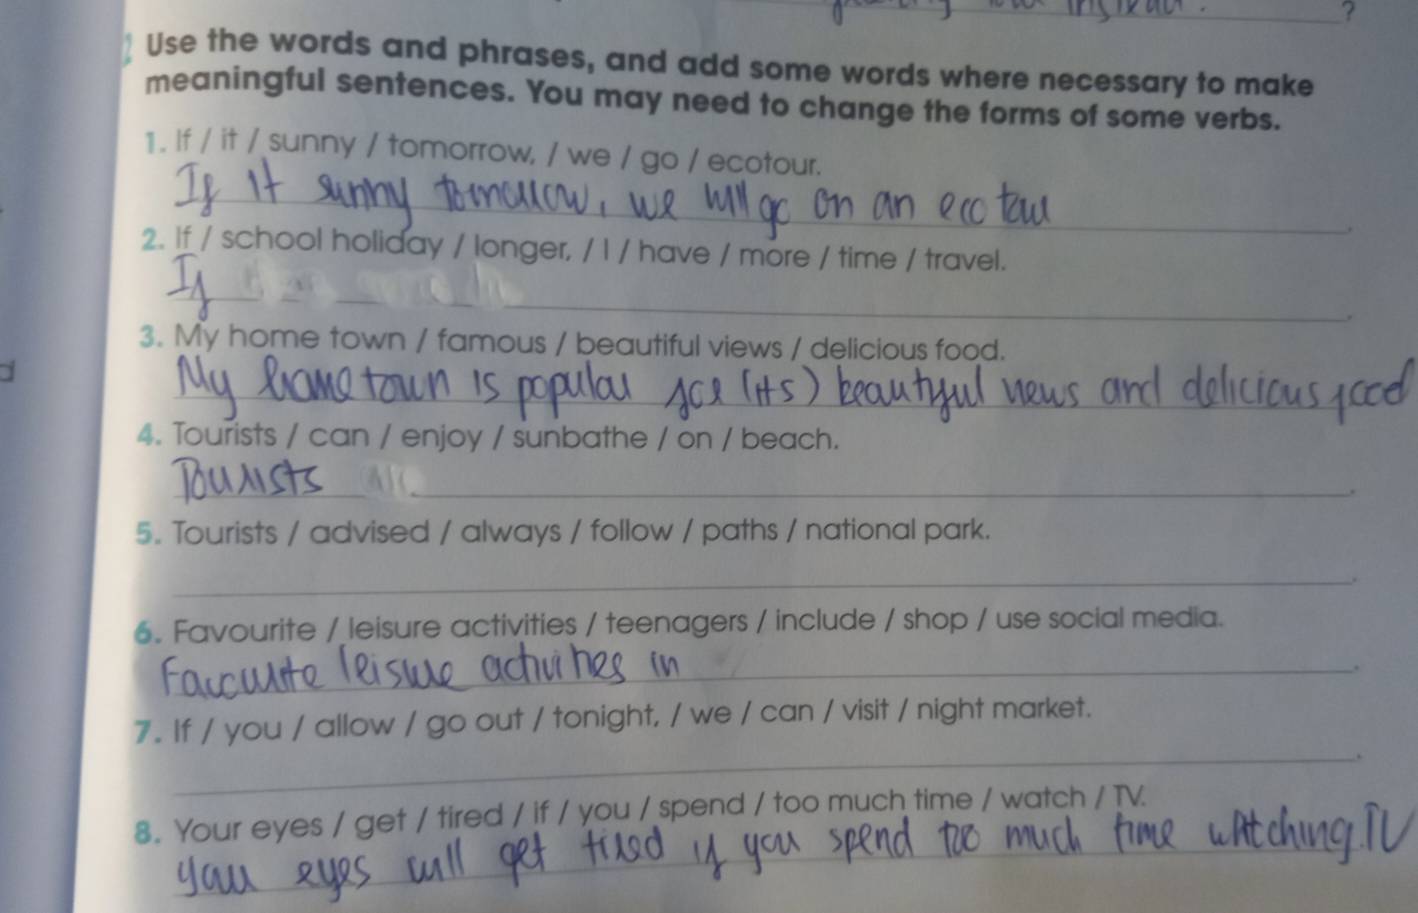 ?
Use the words and phrases, and add some words where necessary to make
meaningful sentences. You may need to change the forms of some verbs.
1. If / it / sunny / tomorrow, / we / go / ecotour.
If it sunny tomorrow, we will go on an eco tour
2. If / school holiday / longer, / I / have / more / time / travel.
If
3. My home town / famous / beautiful views / delicious food.
My home town is popular for (its) beautiful views and delicious food
4. Tourists / can / enjoy / sunbathe / on / beach.
Tourists
5. Tourists / advised / always / follow / paths / national park.
6. Favourite / leisure activities / teenagers / include / shop / use social media.
Favourite leisure activities in
7. If / you / allow / go out / tonight, / we / can / visit / night market.
8. Your eyes / get / tired / if / you / spend / too much time / watch / TV.
your eyes will get tired if you spend too much time watching TV